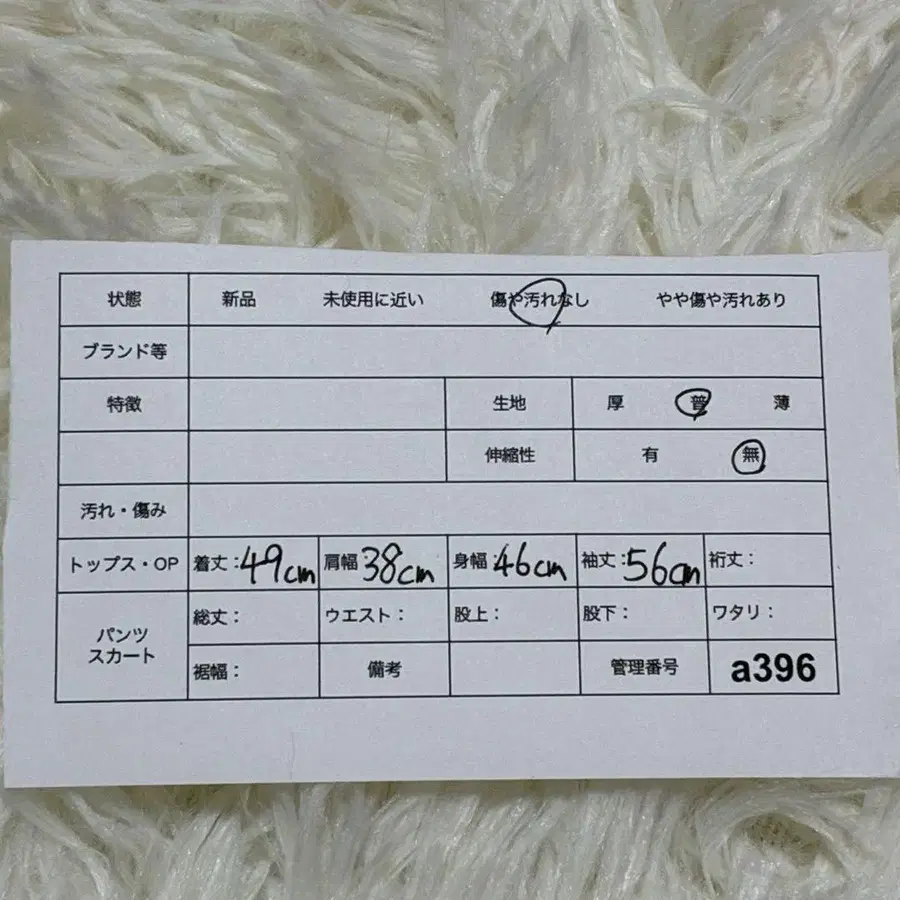 状態 新品 未使用に近い 傷や汚れなし やや傷や汚れあり
ブランド等
特徴 生地 厚 普 薄
伸縮性 有 無
汚れ・傷み
トップス・OP 着丈：49cm 肩幅：38cm 身幅：46cm 袖丈：56cm 裄丈：
パンツ
スカート
総丈： ウエスト： 股上： 股下： ワタリ：
裾幅： 備考 管理番号 a396